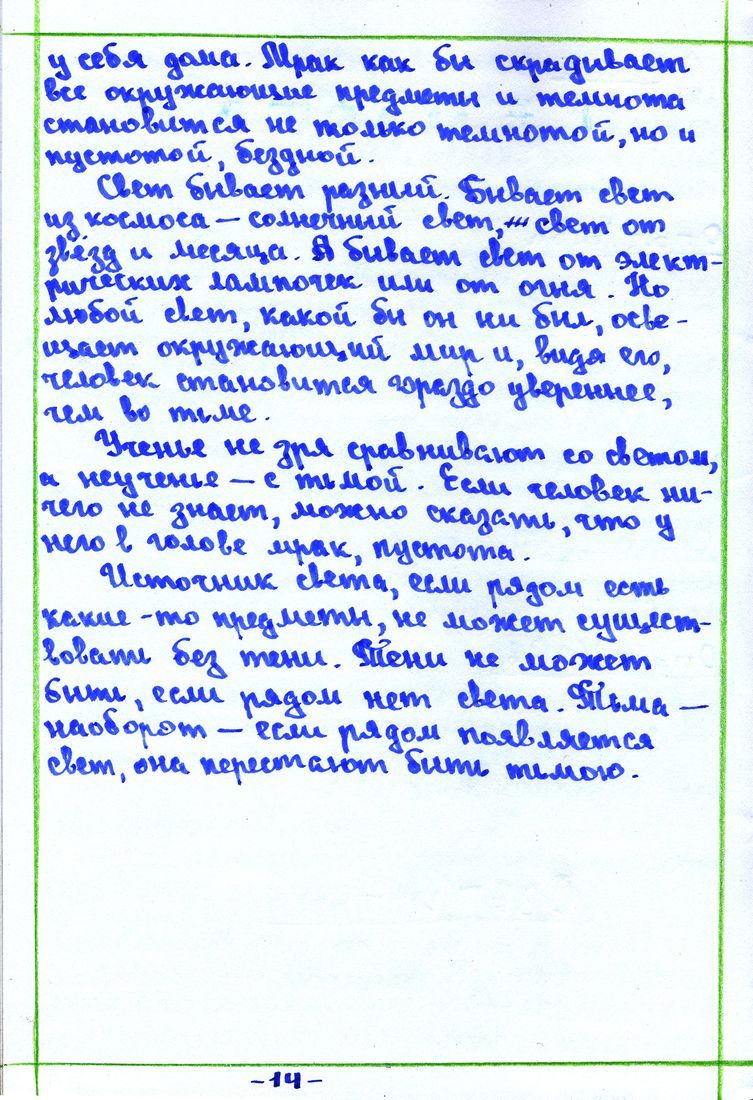 у себя дома. Мрак как бы скрадывает
все окружающие предметы и темнота
становится не только темнотой, но и
пустотой, бездной.
Свет бывает разный. Бывает свет
из космоса – солнечный свет, свет от
звёзд и месяца. А бывает свет от элект-
рических лампочек или от огня. Но
любой свет, какой бы он ни был, осве-
щает окружающий мир и, видя его,
человек становится гораздо увереннее,
чем во тьме.
Ученье не зря сравнивают со светом,
а неученье – с тьмой. Если человек ни-
чего не знает, можно сказать, что у
него в голове мрак, пустота.
Источник света, если рядом есть
какие-то предметы, не может сущест-
вовать без тени. Тени не может
быть, если рядом нет света. Тьма –
наоборот – если рядом появляется
свет, она перестают быть тьмою.
-14-